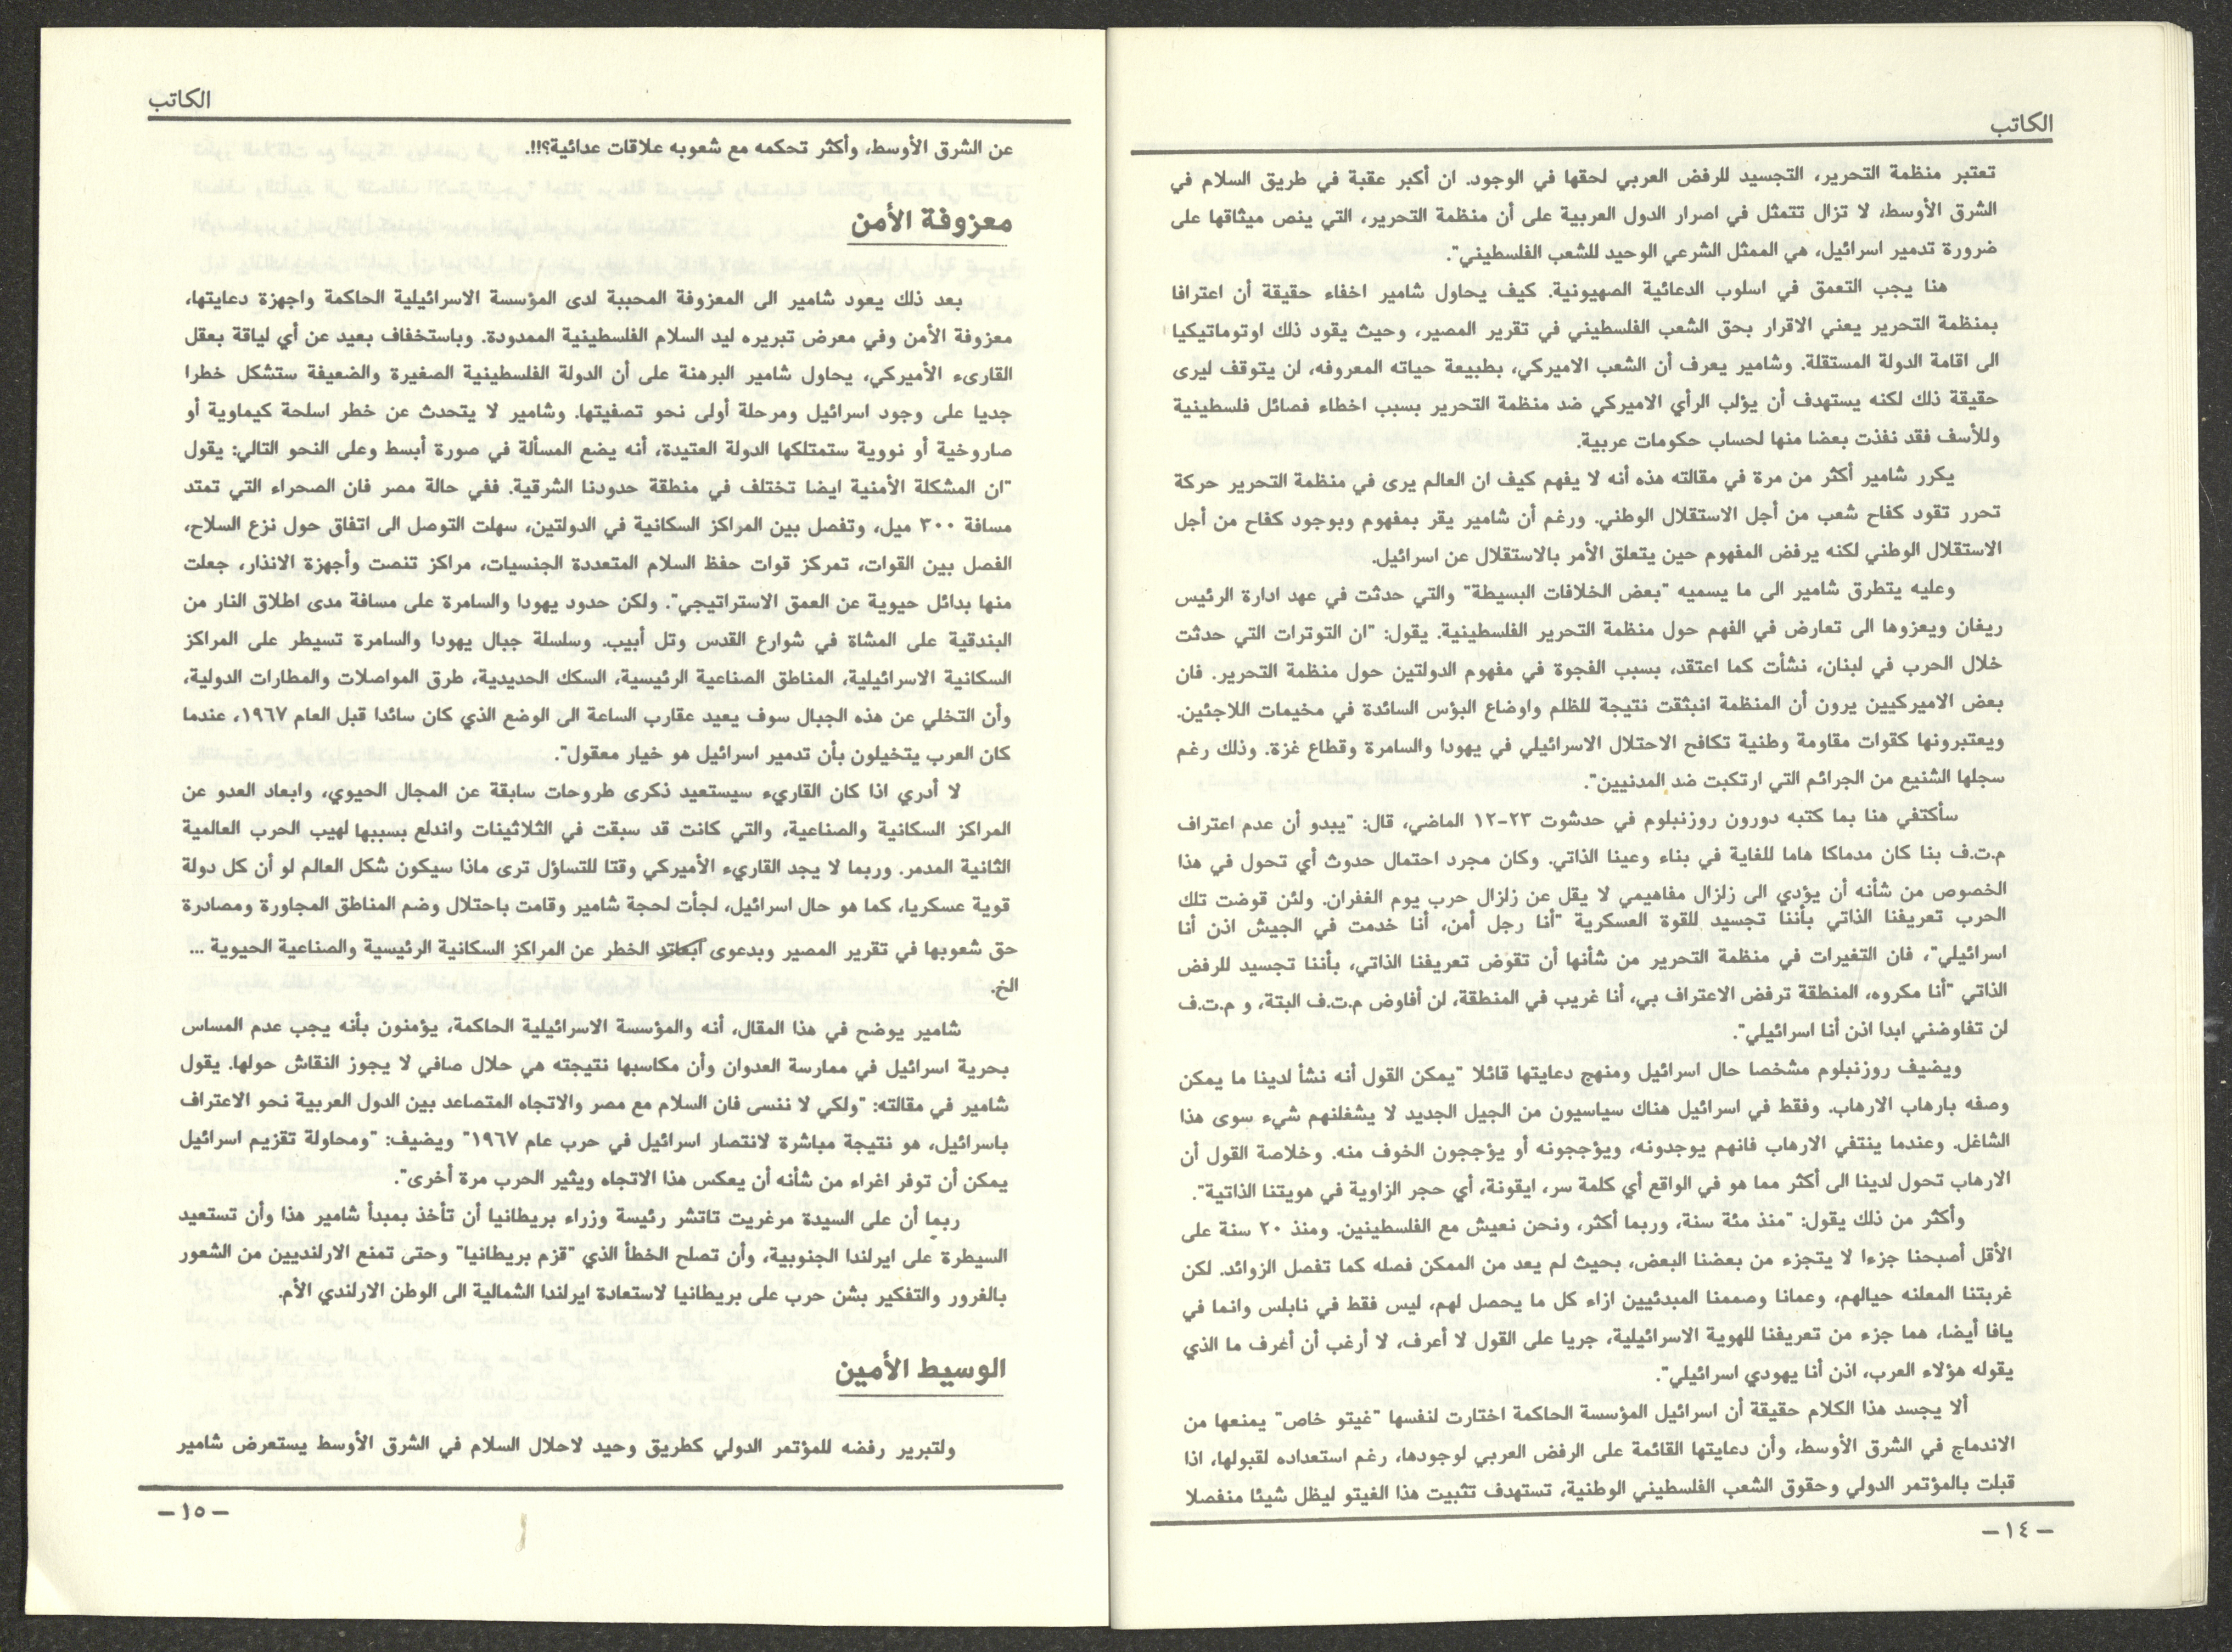 الكاتب
تعتبر منظمة التحرير، التجسيد للرفض العربي لحقها في الوجود. ان أكبر عقبة في طريق السلام في
الشرق الأوسط، لا تزال تتمثل في اصرار الدول العربية على أن منظمة التحرير، التي ينص ميثاقها على
ضرورة تدمير اسرائيل، هي الممثل الشرعي الوحيد للشعب الفلسطيني".
هنا يجب التعمق في اسلوب الدعائية الصهيونية. كيف يحاول شامير اخفاء حقيقة أن اعترافا
بمنظمة التحرير يعني الاقرار بحق الشعب الفلسطيني في تقرير المصير، وحيث يقود ذلك اوتوماتيكيا
الى اقامة الدولة المستقلة. وشامير يعرف أن الشعب الاميركي، بطبيعة حياته المعروفه، لن يتوقف ليرى
حقيقة ذلك لكنه يستهدف أن يؤلب الرأي الاميركي ضد منظمة التحرير بسبب اخطاء فصائل فلسطينية
وللأسف فقد نفذت بعضا منها لحساب حكومات عربية.
يكرر شامير أكثر من مرة في مقالته هذه أنه لا يفهم كيف ان العالم يرى في منظمة التحرير حركة
تحرر تقود كفاح شعب من أجل الاستقلال الوطني. ورغم أن شامير يقر بمفهوم وبوجود كفاح من أجل
الاستقلال الوطني لكنه يرفض المفهوم حين يتعلق الأمر بالاستقلال عن اسرائيل.
وعليه يتطرق شامير الى ما يسميه "بعض الخلافات البسيطة" والتي حدثت في عهد ادارة الرئيس
ريغان ويعزوها الى تعارض في الفهم حول منظمة التحرير الفلسطينية. يقول: "ان التوترات التي حدثت
خلال الحرب في لبنان، نشأت كما اعتقد، بسبب الفجوة في مفهوم الدولتين حول منظمة التحرير. فان
بعض الاميركيين يرون أن المنظمة انبثقت نتيجة للظلم واوضاع البؤس السائدة في مخيمات اللاجئين.
ويعتبرونها كقوات مقاومة وطنية تكافح الاحتلال الاسرائيلي في يهودا والسامرة وقطاع غزة. وذلك رغم
سجلها الشنيع من الجرائم التي ارتكبت ضد المدنيين".
سأكتفي هنا بما كتبه دورون روزنبلوم في حدشوت ٢٣-١٢ الماضي، قال: "يبدو أن عدم اعتراف
م.ت.ف بنا كان مدماكا هاما للغاية في بناء وعينا الذاتي. وكان مجرد احتمال حدوث أي تحول في هذا
الخصوص من شأنه أن يؤدي الى زلزال مفاهيمي لا يقل عن زلزال حرب يوم الغفران. ولئن قوضت تلك
الحرب تعريفنا الذاتي بأننا تجسيد للقوة العسكرية "أنا رجل أمن، أنا خدمت في الجيش اذن أنا
اسرائيلي"، فان التغيرات في منظمة التحرير من شأنها أن تقوض تعريفنا الذاتي، بأننا تجسيد للرفض
الذاتي "أنا مكروه، المنطقة ترفض الاعتراف بي، أنا غريب في المنطقة، لن أفاوض م.ت.ف البتة، و م.ت.ف
لن تفاوضني ابدا اذن أنا اسرائيلي".
ويضيف روزنبلوم مشخصا حال اسرائيل ومنهج دعايتها قائلا "يمكن القول أنه نشأ لدينا ما يمكن
وصفه بارهاب الارهاب. وفقط في اسرائيل هناك سياسيون من الجيل الجديد لا يشغلنهم شيء سوى هذا
الشاغل. وعندما ينتفي الارهاب فانهم يوجدونه، ويؤججونه أو يؤججون الخوف منه. وخلاصة القول أن
الارهاب تحول لدينا الى أكثر مما هو في الواقع أي كلمة سر، ايقونة، أي حجر الزاوية في هويتنا الذاتية".
وأكثر من ذلك يقول: "منذ مئة سنة، وربما أكثر، ونحن نعيش مع الفلسطينين. ومنذ ٢٠ سنة على
الأقل أصبحنا جزءا لا يتجزء من بعضنا البعض، بحيث لم يعد من الممكن فصله كما تفصل الزوائد. لكن
غربتنا المعلنه حيالهم، وعمانا وصممنا المبدئيين ازاء كل ما يحصل لهم، ليس فقط في نابلس وانما في
يافا أيضا، هما جزء من تعريفنا للهوية الاسرائيلية، جريا على القول لا أعرف، لا أرغب أن أعرف ما الذي
يقوله هؤلاء العرب، اذن أنا يهودي اسرائيلي".
ألا يجسد هذا الكلام حقيقة أن اسرائيل المؤسسة الحاكمة اختارت لنفسها "غيتو خاص" يمنعها من
الاندماج في الشرق الأوسط، وأن دعايتها القائمة على الرفض العربي لوجودها، رغم استعداده لقبولها، اذا
قبلت بالمؤتمر الدولي وحقوق الشعب الفلسطيني الوطنية، تستهدف تثبيت هذا الغيتو ليظل شيئا منفصلا
– ١٤ –
الكاتب
عن الشرق الأوسط، وأكثر تحكمه مع شعوبه علاقات عدائية؟!!.
معزوفة الأمن
بعد ذلك يعود شامير الى المعزوفة المحببة لدى المؤسسة الاسرائيلية الحاكمة واجهزة دعايتها،
معزوفة الأمن وفي معرض تبريره ليد السلام الفلسطينية الممدودة. وباستخفاف بعيد عن أي لياقة بعقل
القارىء الأميركي، يحاول شامير البرهنة على أن الدولة الفلسطينية الصغيرة والضعيفة ستشكل خطرا
جديا على وجود اسرائيل ومرحلة أولى نحو تصفيتها. وشامير لا يتحدث عن خطر اسلحة كيماوية أو
صاروخية أو نووية ستمتلكها الدولة العتيدة، أنه يضع المسألة في صورة أبسط وعلى النحو التالي: يقول
"ان المشكلة الأمنية ايضا تختلف في منطقة حدودنا الشرقية. ففي حالة مصر فان الصحراء التي تمتد
مسافة ٣٠٠ ميل، وتفصل بين المراكز السكانية في الدولتين، سهلت التوصل الى اتفاق حول نزع السلاح،
الفصل بين القوات، تمركز قوات حفظ السلام المتعددة الجنسيات، مراكز تنصت وأجهزة الانذار، جعلت
منها بدائل حيوية عن العمق الاستراتيجي". ولكن حدود يهودا والسامرة على مسافة مدى اطلاق النار من
البندقية على المشاة في شوارع القدس وتل أبيب. وسلسلة جبال يهودا والسامرة تسيطر على المراكز
السكانية الاسرائيلية، المناطق الصناعية الرئيسية، السكك الحديدية، طرق المواصلات والمطارات الدولية،
وأن التخلي عن هذه الجبال سوف يعيد عقارب الساعة الى الوضع الذي كان سائدا قبل العام ١٩٦٧، عندما
كان العرب يتخيلون بأن تدمير اسرائيل هو خيار معقول".
لا أدري اذا كان القاريء سيستعيد ذكرى طروحات سابقة عن المجال الحيوي، وابعاد العدو عن
المراكز السكانية والصناعية، والتي كانت قد سبقت في الثلاثينات واندلع بسببها لهيب الحرب العالمية
الثانية المدمر. وربما لا يجد القاريء الأميركي وقتا للتساؤل ترى ماذا سيكون شكل العالم لو أن كل دولة
قوية عسكريا، كما هو حال اسرائيل، لجأت لحجة شامير وقامت باحتلال وضم المناطق المجاورة ومصادرة
حق شعوبها في تقرير المصير وبدعوى الخطر عن المراكز السكانية الرئيسية والصناعية الحيوية ...
الخ.
شامير يوضح في هذا المقال، أنه والمؤسسة الاسرائيلية الحاكمة، يؤمنون بأنه يجب عدم المساس
بحرية اسرائيل في ممارسة العدوان وأن مكاسبها نتيجته هي حلال صافي لا يجوز النقاش حولها. يقول
شامير في مقالته: "ولكي لا ننسى فان السلام مع مصر والاتجاه المتصاعد بين الدول العربية نحو الاعتراف
باسرائيل، هو نتيجة مباشرة لانتصار اسرائيل في حرب عام ١٩٦٧" ويضيف: "ومحاولة تقزيم اسرائيل
يمكن أن توفر اغراء من شأنه أن يعكس هذا الاتجاه ويثير الحرب مرة أخرى".
ربما أن على السيدة مرغريت تاتشر رئيسة وزراء بريطانيا أن تأخذ بمبدأ شامير هذا وأن تستعيد
السيطرة على ايرلندا الجنوبية، وأن تصلح الخطأ الذي "قزم بريطانيا" وحتى تمنع الارلنديين من الشعور
بالغرور والتفكير بشن حرب على بريطانيا لاستعادة ايرلندا الشمالية الى الوطن الارلندي الأم.
الوسيط الأمين
ولتبرير رفضه للمؤتمر الدولي كطريق وحيد لاحلال السلام في الشرق الأوسط يستعرض شامير
– ١٥ –